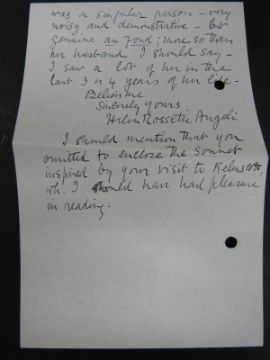 was a singular person - very
noisy and demonstrative - but
genuine au fond; more so than
her husband I should say -
I saw a lot of her in the
last 3 or 4 years of her life.
Believe me
Sincerely yours
Helen Rossetti Angeli
I should mention that you
omitted to enclose the sonnet
inspired by your visit to Kelmscott,
wh. I should have had pleasure
in reading.